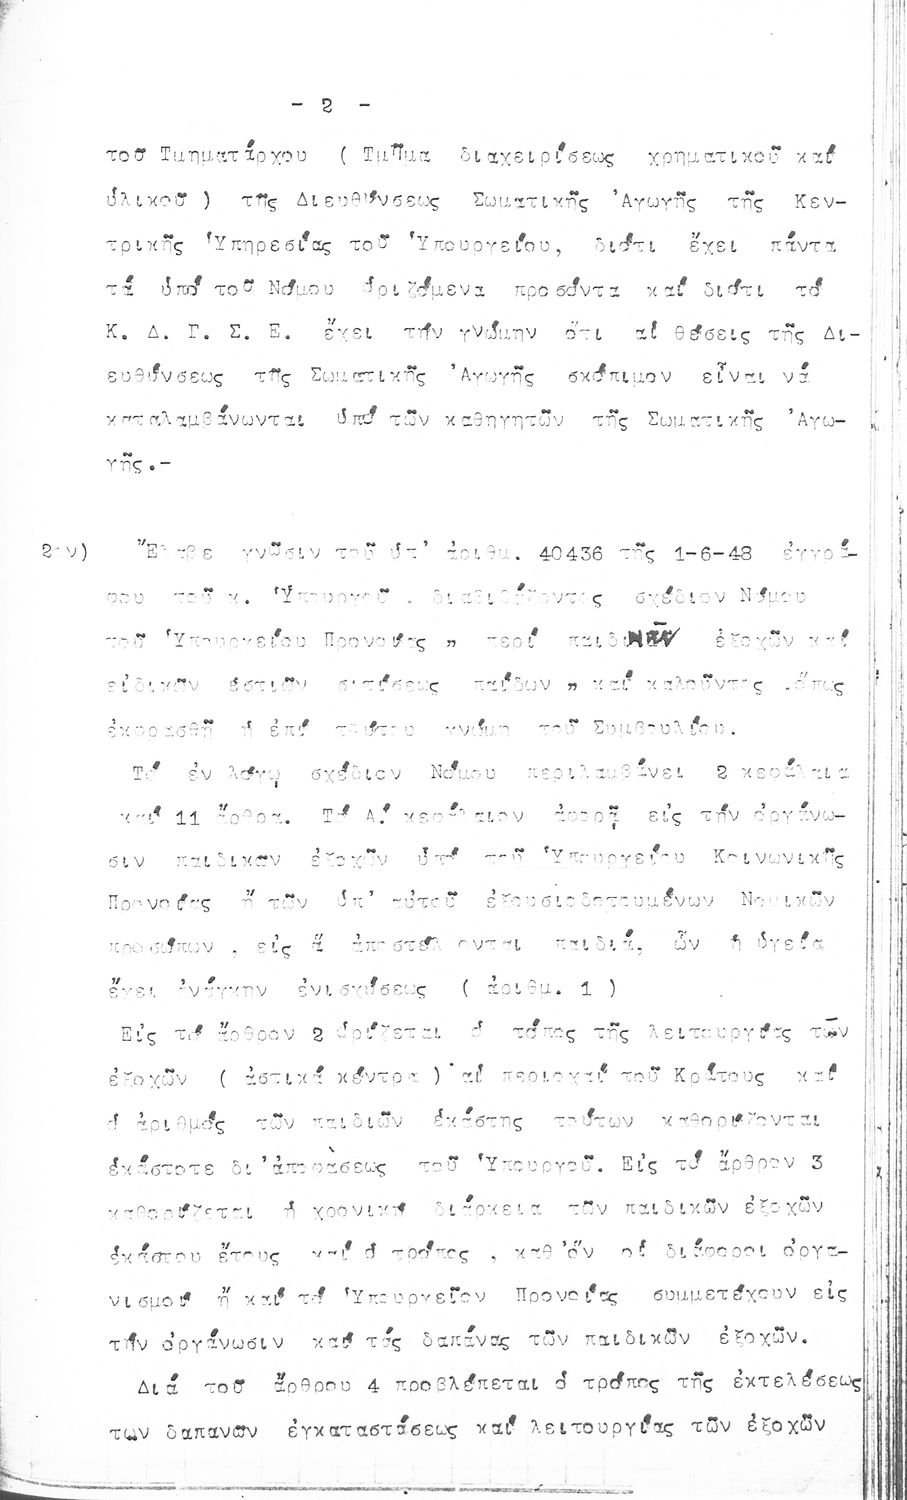 - 2 -
τοῦ Τμηματάρχου ( Τμῆμα διαχειρίσεως χρηματικοῦ καί
ὑλικοῦ ) τῆς Διευθύνσεως Σωματικῆς Ἀγωγῆς τῆς Κεν-
τρικῆς Ὑπηρεσίας τοῦ Ὑπουργείου, διότι ἔχει πάντα
τά ὑπό τοῦ Νόμου ὁριζόμενα προσόντα καί διότι τό
Κ. Δ. Γ. Σ. Ε. ἔχει τήν γνώμην ὅτι αἱ θέσεις τῆς Δι-
ευθύνσεως τῆς Σωματικῆς Ἀγωγῆς σκόπιμον εἶναι νά
καταλαμβάνωνται ὑπό τῶν καθηγητῶν τῆς Σωματικῆς Ἀγω-
γῆς.-
2ον) Ἔλαβε γνῶσιν τοῦ ὑπ' ἀριθμ. 40436 τῆς 1-6-48 ἐγγρά-
φου τοῦ κ. Ὑπουργοῦ . διαβιβάζοντος σχέδιον Νόμου
τοῦ Ὑπουργείου Προνοίας " περί παιδικῶν ἐξοχῶν καί
εἰδικῶν ἑστιῶν σιτίσεως παίδων " καί καλοῦντος .ὅπως
ἐκφρασθῇ ἡ ἐπί τούτου γνώμη τοῦ Συμβουλίου.
Τό ἐν λόγῳ σχέδιον Νόμου περιλαμβάνει 2 κεφάλαια
καί 11 ἄρθρα. Τό Α! κεφάλαιον ἀφορᾷ εἰς τήν ὀργάνω-
σιν παιδικῶν ἐξοχῶν ὑπό τοῦ Ὑπουργείου Κοινωνικῆς
Προνοίας ἤ τῶν ὑπ' αὐτοῦ ἐξουσιοδοτουμένων Νομικῶν
προσώπων , εἰς ἅ ἀποστέλονται παιδιά, ὧν ἡ ὑγεία
ἔχει ἀνάγκην ἐνισχύσεως ( ἀριθμ. 1 )
Εἰς τό ἄρθρον 2 ὁρίζεται ὁ τόπος τῆς λειτουργίας τῶν
ἐξοχῶν ( ἀστικά κέντρα ) αἱ περιοχαί τοῦ Κράτους καί
ὁ ἀριθμός τῶν παιδιῶν ἑκάστης τούτων καθορίζονται
ἑκάστοτε δι'ἀποφάσεως τοῦ Ὑπουργοῦ. Εἰς τό ἄρθρον 3
καθορίζεται ἡ χρονική διάρκεια τῶν παιδικῶν ἐξοχῶν
ἑκάστου ἔτους καί ὁ τρόπος , καθ'ὅν οἱ διάφοροι ὀργα-
νισμοί ἤ καί τό Ὑπουργεῖον Προνοίας συμμετέχουν εἰς
τήν ὀργάνωσιν καί τάς δαπάνας τῶν παιδικῶν ἐξοχῶν.
Διά τοῦ ἄρθρου 4 προβλέπεται ὁ τρόπος τῆς ἐκτελέσεως
των δαπανῶν ἐγκαταστάσεως καί λειτουργίας τῶν ἐξοχῶν